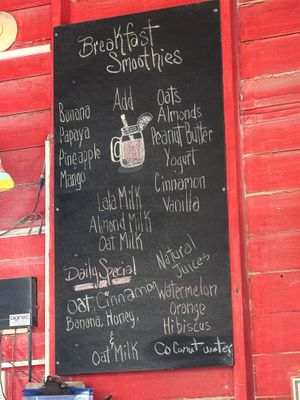 Breakfast
Smoothies
Banana
Papaya
Pineapple
Mango
Add
Oats
Almonds
Peanut Butter
Yogurt
Cinnamon
Vanilla
Lala Milk
Almond Milk
Oat Milk
Daily Special
Oat, Cinnamon
Banana, Honey,
&
Oat Milk
Natural
Juices
Watermelon
Orange
Hibiscus
Coconut water